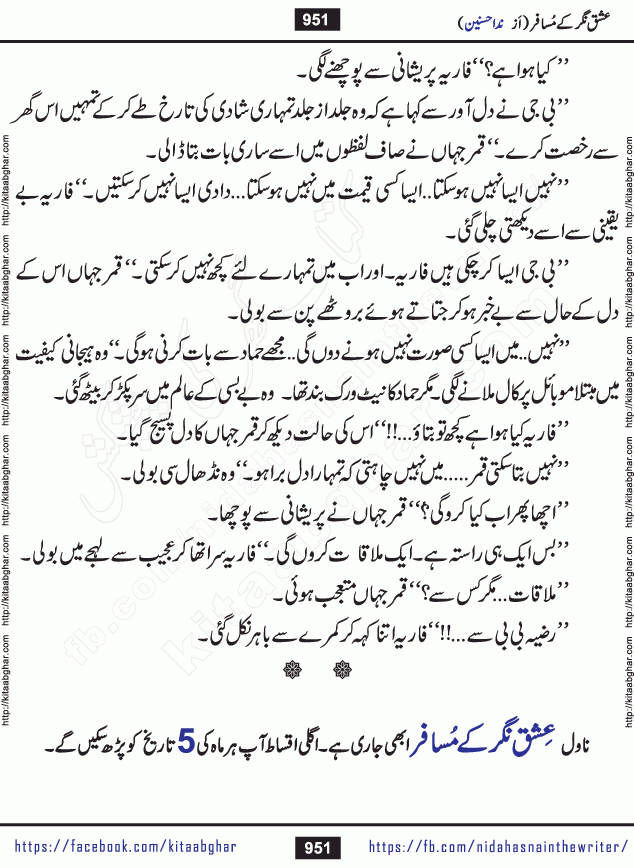 951
عشق نگر کے مُسافر (از نداحسنین)
’’کیا ہوا ہے؟‘‘ فاریہ پریشانی سے پوچھنے لگی۔
’’بی جی نے دل آور سے کہا ہے کہ وہ جلد از جلد تمہاری شادی کی تارخ طے کر کے تمہیں اس گھر
سے رخصت کرے۔‘‘ قمر جہاں نے صاف لفظوں میں اسے ساری بات بتا ڈالی۔
’’نہیں ایسا نہیں ہوسکتا..ایسا کسی قیمت میں نہیں ہوسکتا...دادی ایسا نہیں کرسکتیں۔‘‘ فاریہ بے
یقینی سے اسے دیکھتی چلی گئی۔
’’بی جی ایسا کر چکی ہیں فاریہ۔ اور اب میں تمہارے لئے کچھ نہیں کر سکتی۔‘‘ قمر جہاں اس کے
دل کے حال سے بے خبر ہو کر جتاتے ہوئے بروٹھے پن سے بولی۔
’’نہیں..میں ایسا کسی صورت نہیں ہونے دوں گی..مجھے حماد سے بات کرنی ہوگی۔‘‘ وہ ہیجانی کیفیت
میں مبتلا موبائل پر کال ملانے لگی۔ مگر حماد کا نیٹ ورک بند تھا۔ وہ بے بسی کے عالم میں سر پکڑ کر بیٹھ گئی۔
’’فاریہ کیا ہوا ہے کچھ تو بتاؤ...!!‘‘ اس کی حالت دیکھ کر قمر جہاں کا دل پسیج گیا۔
’’نہیں بتا سکتی قمر.....میں نہیں چاہتی کہ تمہارا دل برا ہو۔‘‘ وہ نڈھال سی بولی۔
’’اچھا پھر اب کیا کرو گی؟‘‘ قمر جہاں نے پریشانی سے پوچھا۔
’’بس ایک ہی راستہ ہے۔ ایک ملاقات کروں گی۔‘‘ فاریہ سر اٹھا کر عجیب سے لہجے میں بولی۔
’’ملاقات...مگر کس سے؟‘‘ قمر جہاں متعجب ہوئی۔
’’رضیہ بی بی سے...!!‘‘ فاریہ اتنا کہہ کر کمرے سے باہر نکل گئی۔
ناول عِشق نگر کے مُسافر ابھی جاری ہے۔ اگلی اقساط آپ ہر ماہ کی 5 تاریخ کو پڑھ سکیں گے۔
https://facebook.com/kitaabghar
951
https://fb.com/nidahasnainthewriter/
http://kitaabghar.com http://kitaabghar.com http://kitaabghar.com http://kitaabghar.com http://kitaabghar.com http://kitaabghar.com
http://kitaabghar.com http://kitaabghar.com http://kitaabghar.com http://kitaabghar.com http://kitaabghar.com http://kitaabghar.com